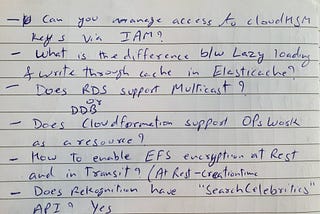 - Can you manage access to cloudHSM
keys via IAM?
- What is the difference b/w Lazy loading
& write through cache in Elasticache?
- Does RDS support Multicast?
or
DDB
- Does Cloudformation support OPsWork
as a resource?
- How to enable EFS encryption at Rest
and in Transit? (At Rest-Creation time
- Does Rekognition have "SearchCelebrities"
API? Yes